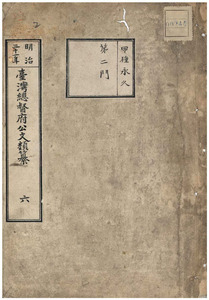 甲種永久
第二門
明治
三十一年
臺灣總督府公文類纂
六